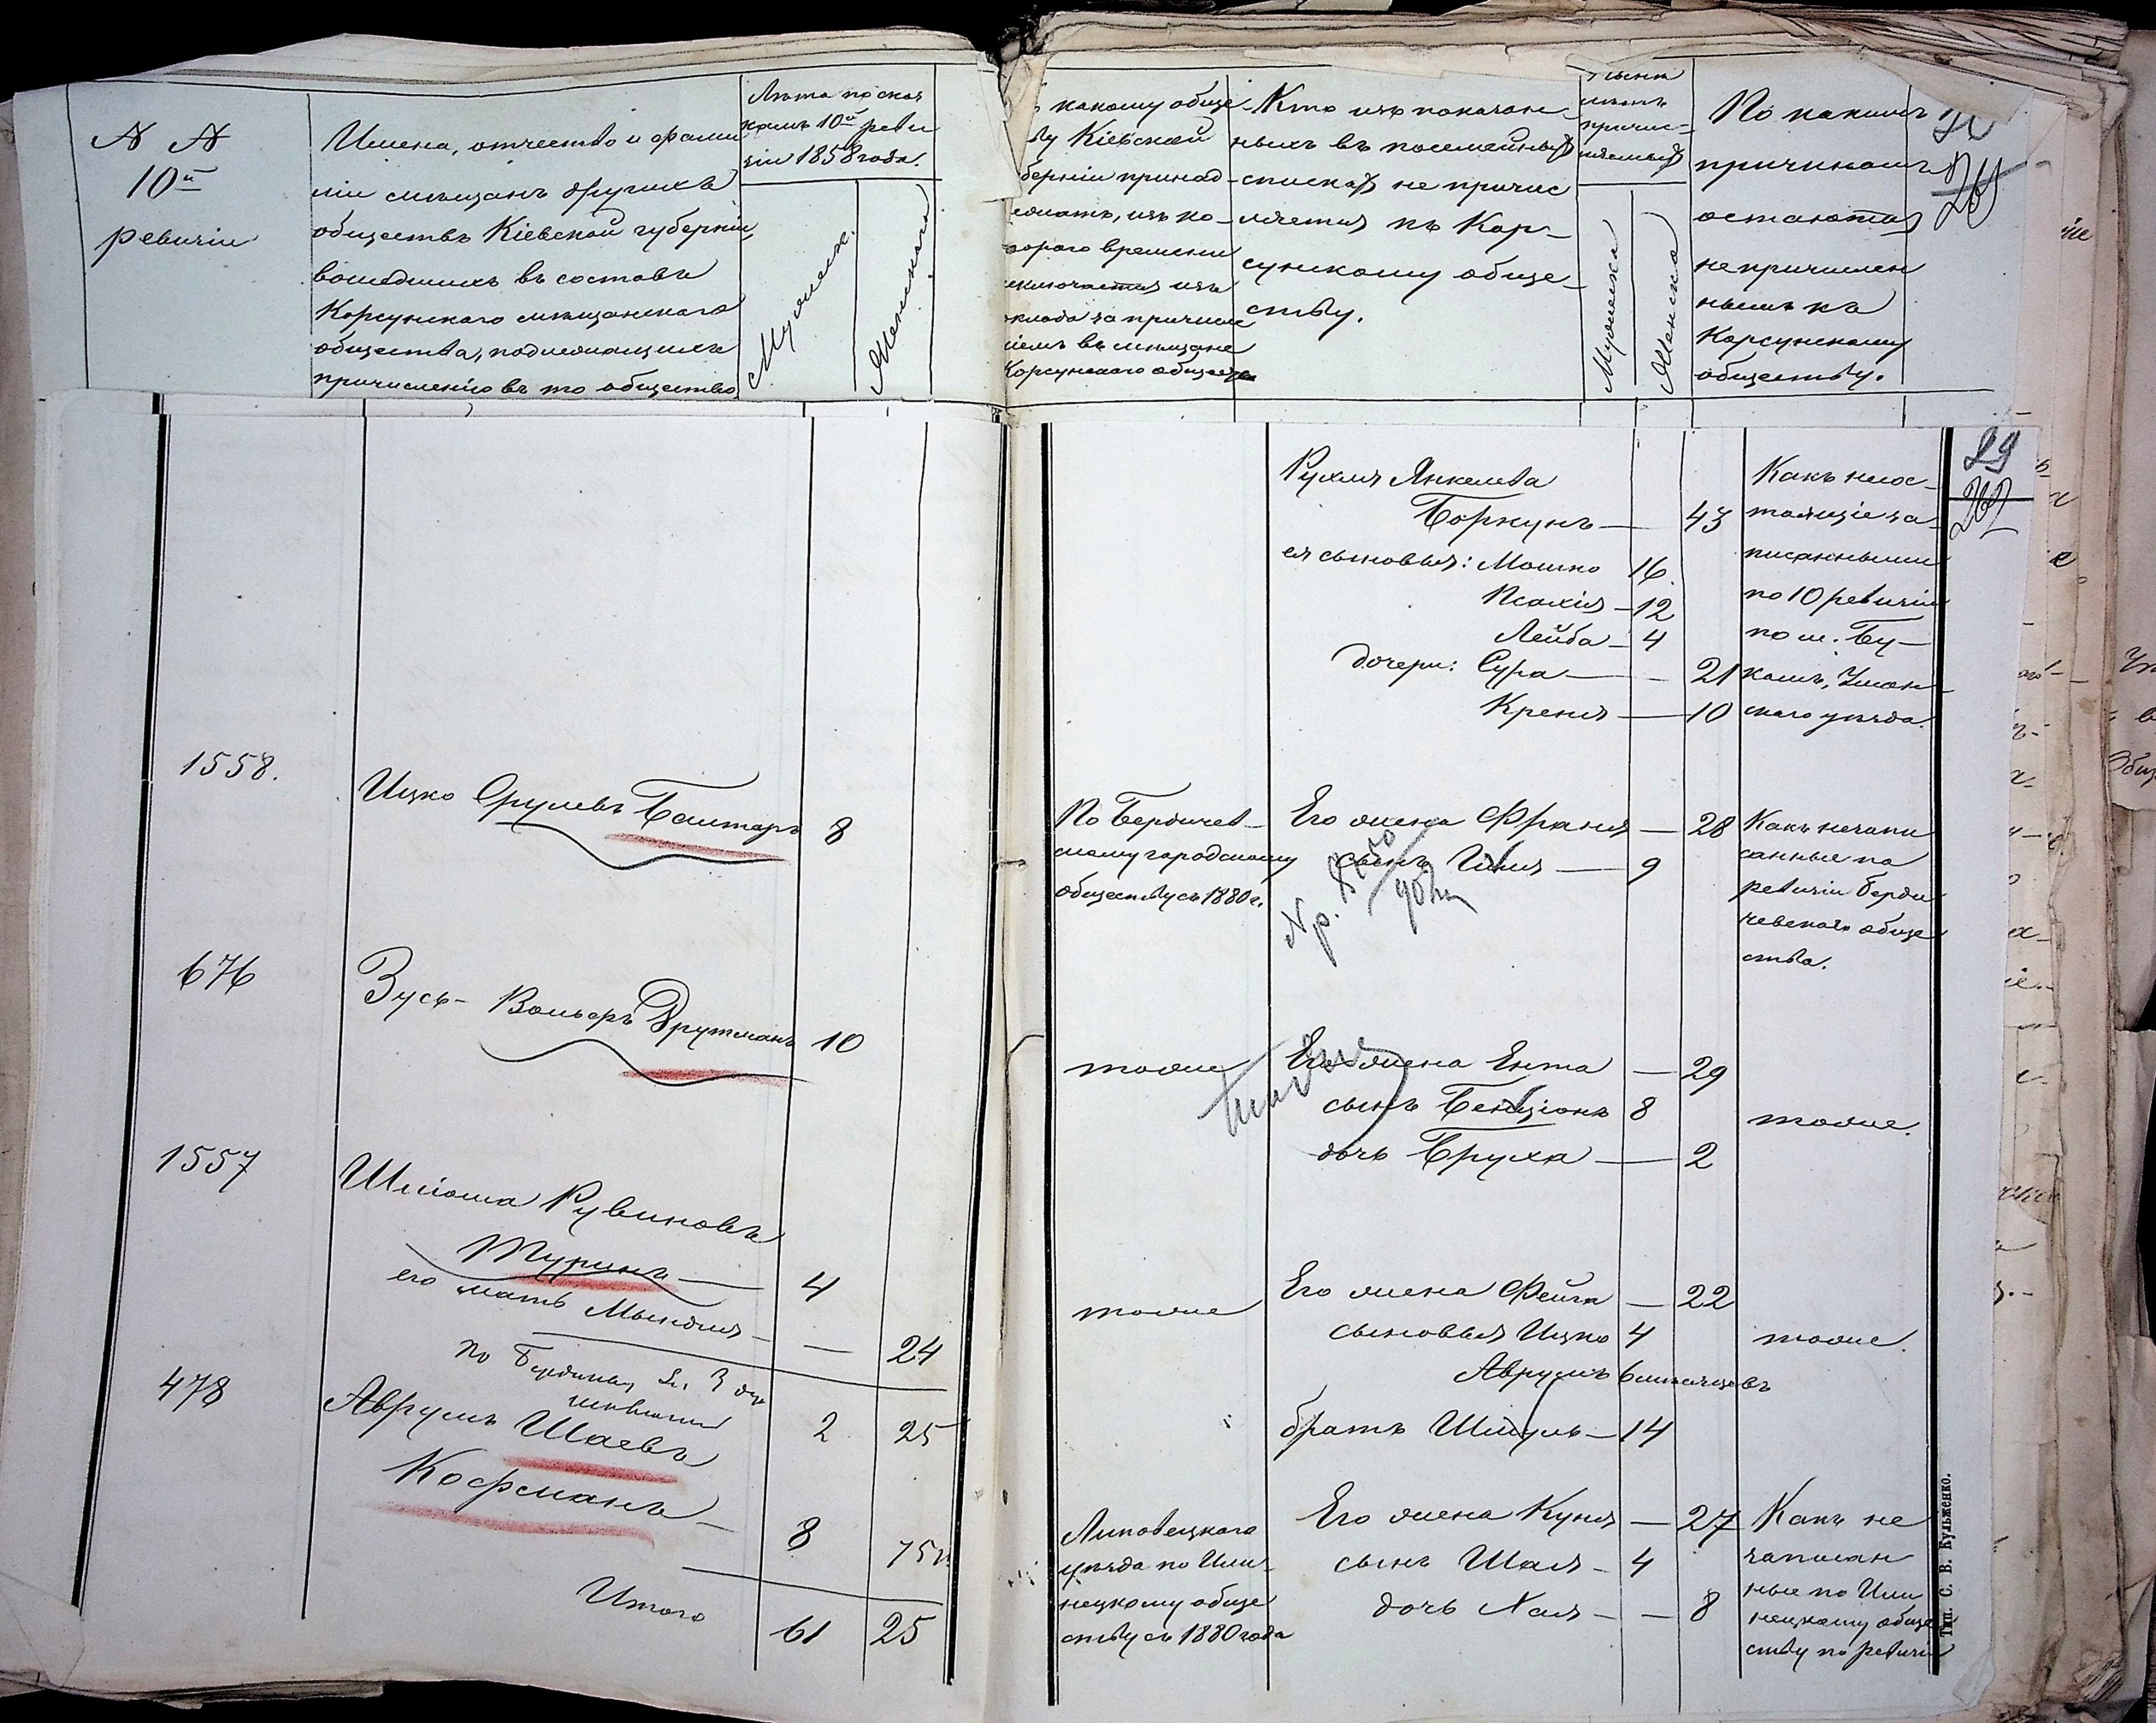 N N
10й
ревизіи
Имена, отчество и фами
ліи мещанъ другихъ
обществъ Кіевской губерніи,
вошедшихъ въ составъ
Корсунскаго мещанскаго
общества, подлежащихъ
причисленію въ то общество
Лѣта по сказ
камъ 10й реви
зіи 1858 года.
Мужеск.
Женскаго
какому обще
ву Кіевской
берніи принад
лежатъ, изъ ко
тораго времени
исключаются изъ
оклада за причисле
ніемъ въ мещане
Корсунскаго общества
Кто изъ показан
ныхъ въ посемейныхъ
спискахъ не причис
ляется къ Кор
сунскому обще
ству.
причис
ляемыхъ
Мужеска
Женска
По какимъ
причинамъ
остаются
непричислен
ными къ
Корсунскому
обществу.
29
Рухля Янкелева
Боркунъ — 43
ея сыновья: Мошко 16
Псахія — 12
Лейба — 4
дочери: Сура — 21
Креня — 10
Какъ неос
тавшіе за
писанными
по 10 ревизіи
по м. Бу
камъ, Уман
скаго уѣзда.
1558.
Ицко Срулевъ Баштаръ 8
По Бердичев
скому городскому
обществу съ 1880 г.
Его жена Франя — 28
сынъ — 9
Какъ незапи
санные по
ревизіи Берди
чевскаго обще
ства.
676
Зусь-Вольфъ Друтманъ 10
тоже
Его жена Ента — 29
сынъ Бенціонъ 8
дочь Бруха — 2
тоже.
1557
Шліома Рувиновъ
Туринъ — 4
его мать Мындля — — 24
по
2 25
тоже
Его жена Фейга — 22
сыновья Ицко 4
Аврумъ 6 мѣсяцевъ
братъ Шмуль — 14
тоже.
478
Аврумъ Шаевъ
Кофманъ — 8
Итого 61 25
Липовецкаго
уѣзда по Или
нецкому обще
ству съ 1880 года
Его жена Куня — 27
сынъ Шая — 4
дочь Хая — — 8
Какъ не
записан
ные по Или
нецкому обще
ству по ревизіи
Тип. С. В. Кульженко.